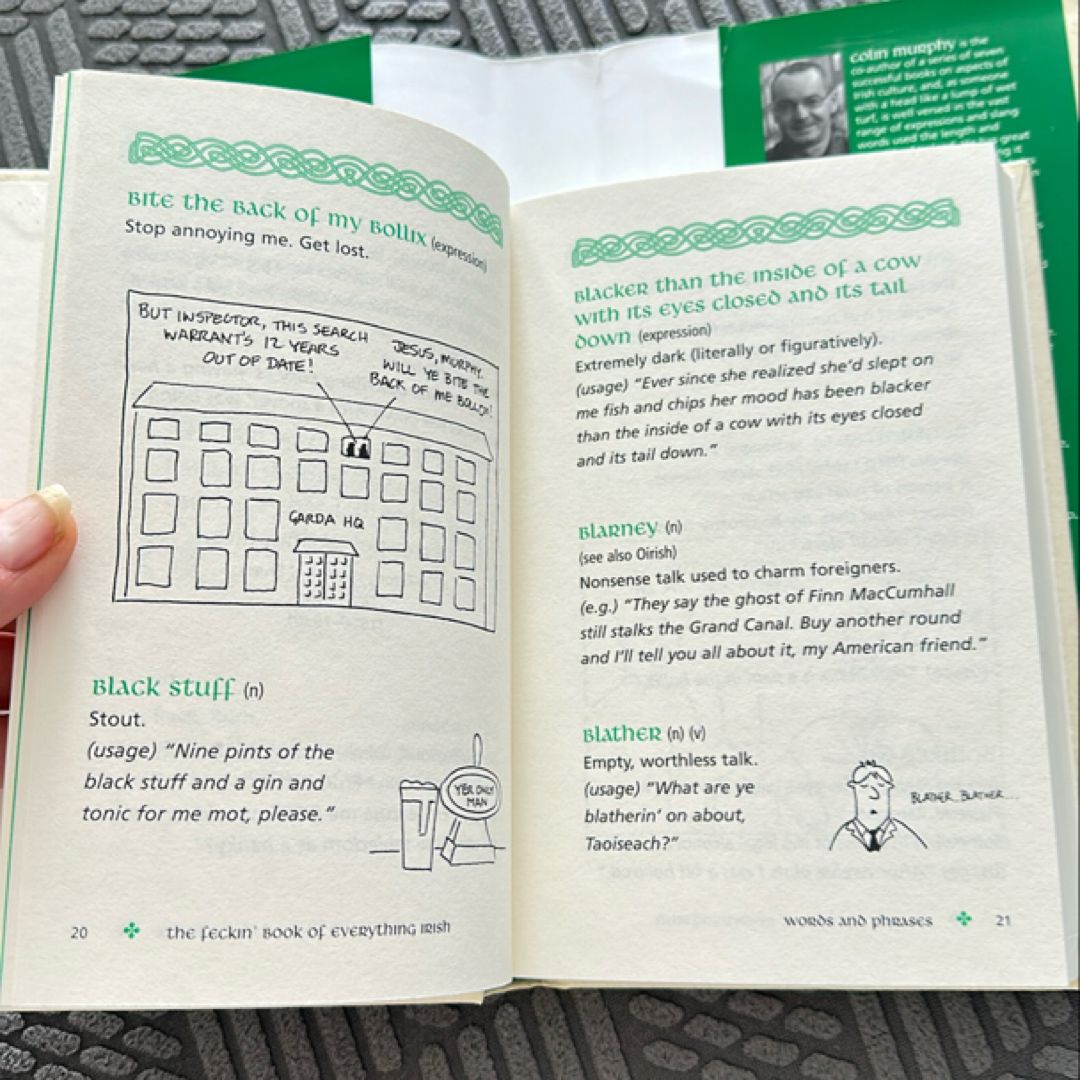 BITE THE BACK OF MY BOLLIX (expression)
Stop annoying me. Get lost.
BUT INSPECTOR, THIS SEARCH
WARRANT'S 12 YEARS
OUT OF DATE!
JESUS, MURPHY.
WILL YE BITE THE
BACK OF ME BOLLIX!
GARDA HQ
BLACK STUFF (n)
Stout.
(usage) “Nine pints of the
black stuff and a gin and
tonic for me mot, please.”
YER ONLY
MAN
20 THE FECKIN’ BOOK OF EVERYTHING IRISH
colin murphy is the
co-author of a series of seven
successful books on aspects of
Irish culture, and, as someone
with a head like a lump of wet
turf, is well versed in the vast
range of expressions and slang
words used the length and
great
it
BLACKER THAN THE INSIDE OF A COW
WITH ITS EYES CLOSED AND ITS TAIL
DOWN (expression)
Extremely dark (literally or figuratively).
(usage) “Ever since she realized she’d slept on
me fish and chips her mood has been blacker
than the inside of a cow with its eyes closed
and its tail down.”
BLARNEY (n)
(see also Oirish)
Nonsense talk used to charm foreigners.
(e.g.) “They say the ghost of Finn MacCumhall
still stalks the Grand Canal. Buy another round
and I’ll tell you all about it, my American friend.”
BLATHER (n) (v)
Empty, worthless talk.
(usage) “What are ye
blatherin’ on about,
Taoiseach?”
BLATHER BLATHER....
WORDS AND PHRASES 21